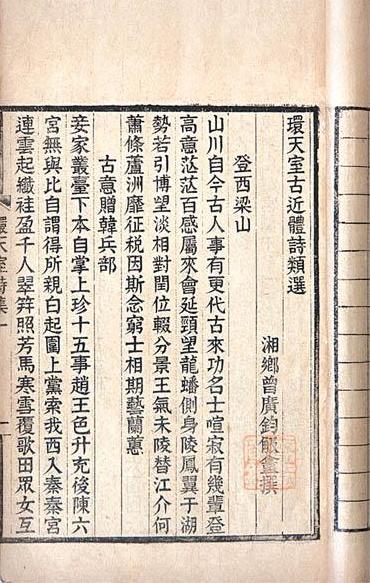 環天室古近體詩類選
湘鄉曾廣鈞撰
登西梁山
山川自今古人事有更代古來功名士喧寂有幾輩登
高意茫茫百感屬來會延頸望龍蟠側身陵鳳翼于湖
勢若引博望淡相對閏位輟分景王氣未陵替江介何
蕭條蘆洲靡征税因斯念窮士相期藝蘭蕙
古意贈韓兵部
妾家叢臺下本自掌上珍十五事趙王色升充後陳六
宮無與比自謂得所親白起圍上黨索我西入秦秦宮
連雲起纖袿盈千人翠笄照芳馬寒雪覆歌田眾女互
環天室詩集一